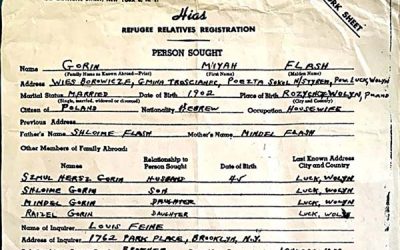 RK SHEET
Hias
REFUGEE RELATIVES REGISTRATION
PERSON SOUGHT
Name GORIN MIYAH FLASH
(Family Name as Known Abroad—Print) (First Name) (Maiden Name)
Address WIES BOROWICZE, GMINA TROSCIANEC, POCZTA SOKOL N/STYREM, POW. LUCK, WOLYN
Marital Status MARRIED Date of Birth 1902 Place of Birth ROZYCHCZ WOLYN, POLAND
(Single, married, widowed or divorced) (City and County)
Citizen of POLAND Nationality HEBREW Occupation HOUSEWIFE
Previous Address
Father's Name SHLOIME FLASH Mother's Name MINDEL FLASH
Other Members of Family Abroad:
Name Relationship to Person Sought Date of Birth Last Known Address City and Country
SZMUL HERSZ GORIN HUSBAND 45 LUCK, WOLYN
SHLOIME GORIN SON LUCK, WOLYN
MINDEL GORIN DAUGHTER LUCK, WOLYN
RAIZEL GORIN DAUGHTER LUCK, WOLYN
Name of Inquirer LOUIS FEINE
Address of Inquirer 1762 PARK PLACE, BROOKLYN, N.Y.